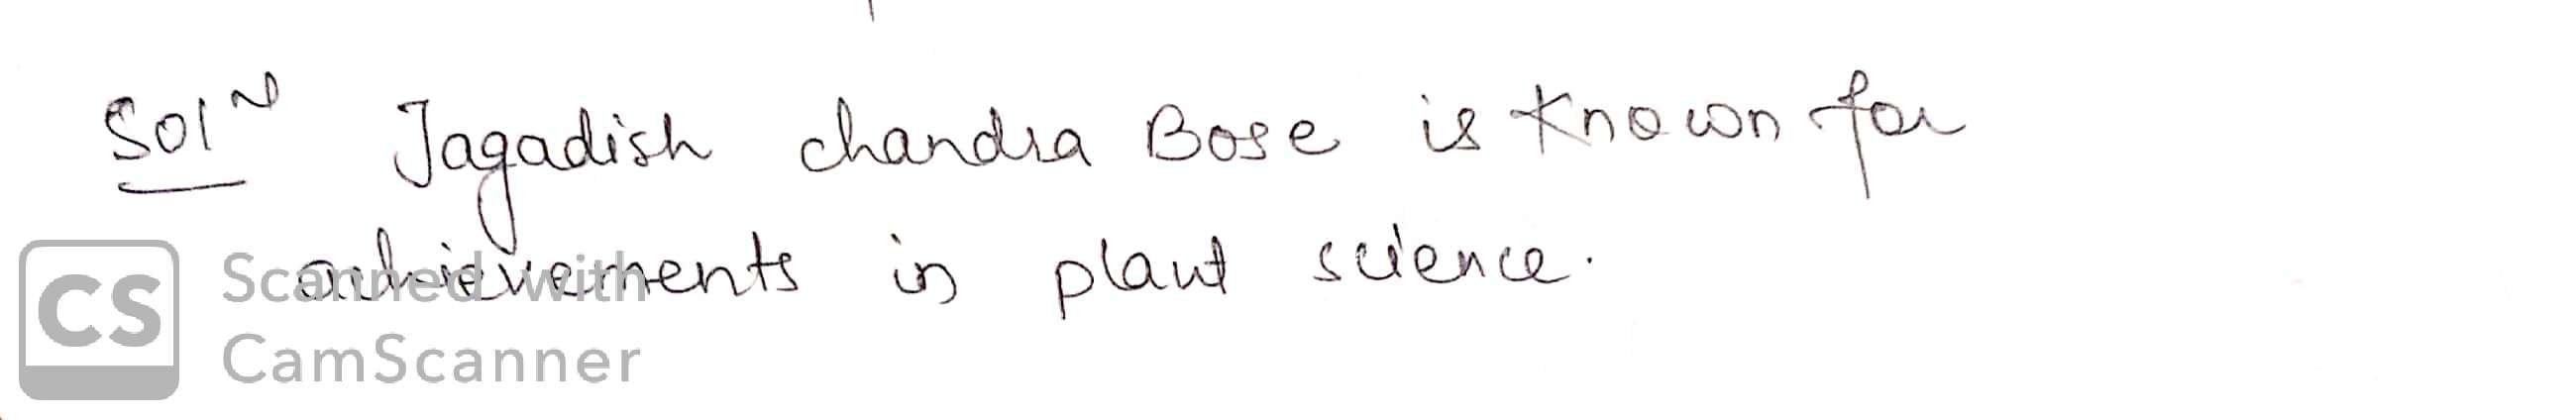 Solⁿ Jagadish chandra Bose is Known for
achievements in plant science.
CS Scanned with
CamScanner